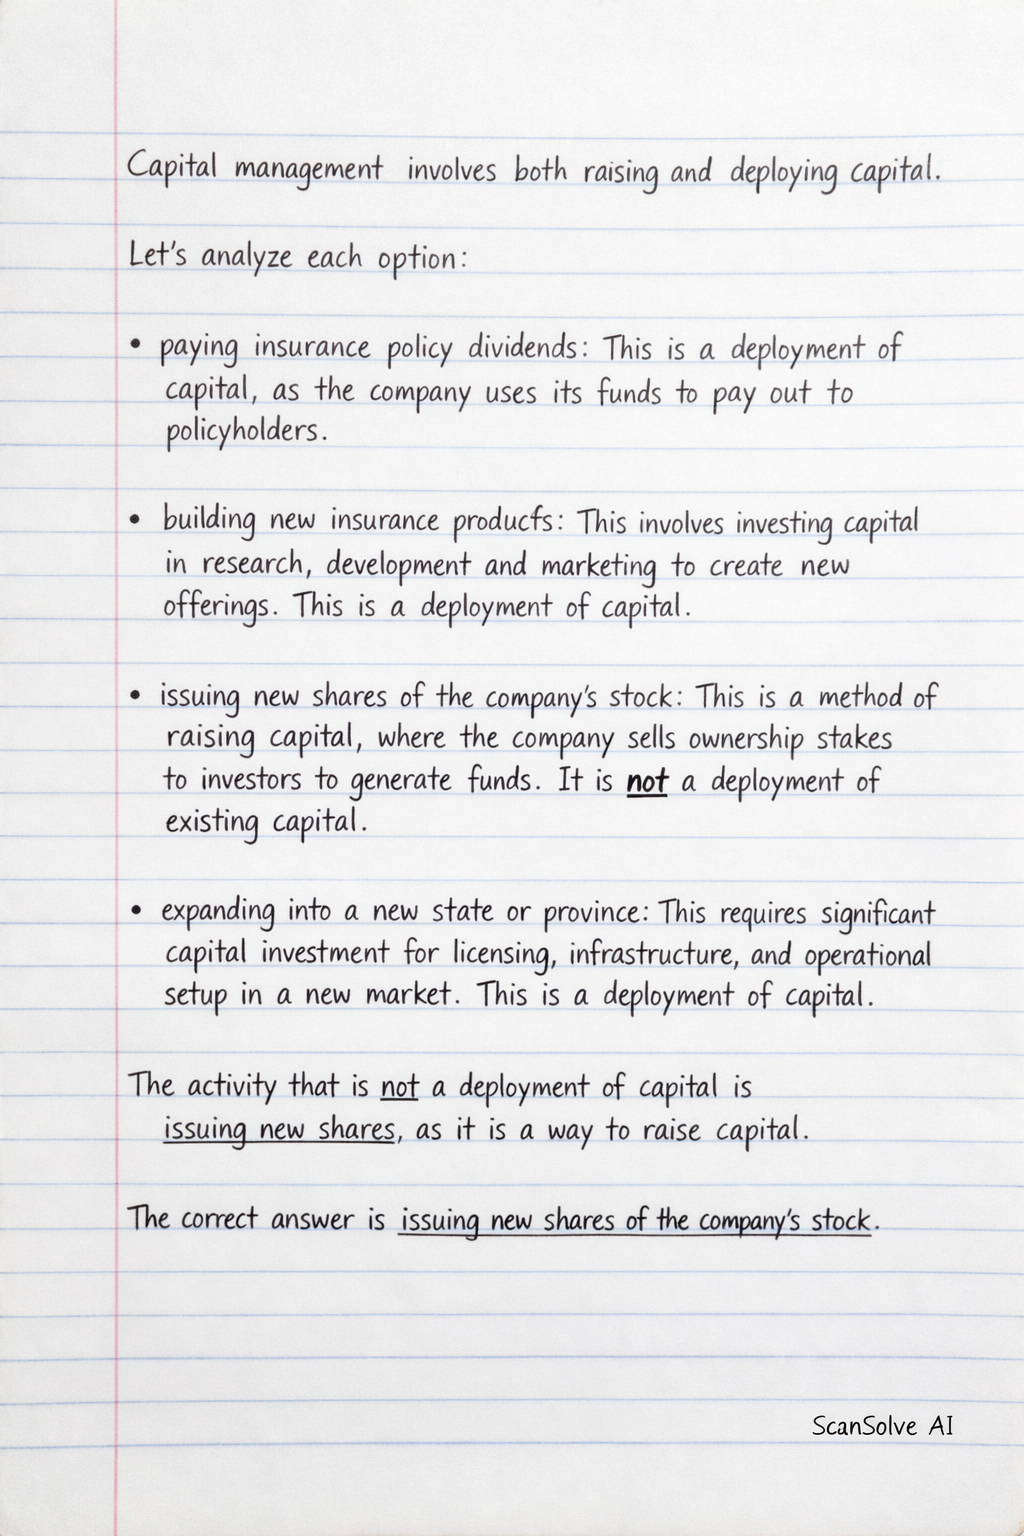 Capital management involves both raising and deploying capital.
Let's analyze each option:
• paying insurance policy dividends: This is a deployment of
capital, as the company uses its funds to pay out to
policyholders.
• building new insurance products: This involves investing capital
in research, development and marketing to create new
offerings. This is a deployment of capital.
• issuing new shares of the company's stock: This is a method of
raising capital, where the company sells ownership stakes
to investors to generate funds. It is not a deployment of
existing capital.
• expanding into a new state or province: This requires significant
capital investment for licensing, infrastructure, and operational
setup in a new market. This is a deployment of capital.
The activity that is not a deployment of capital is
issuing new shares, as it is a way to raise capital.
The correct answer is issuing new shares of the company's stock.
ScanSolve AI